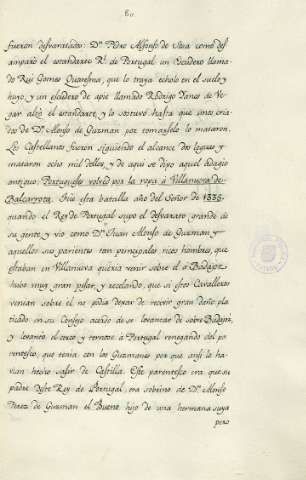 60
fueron desvaratados: Dⁿ Pero Alfonso de Sosa como des
amparò el estandarte Rˡ de Portugal un Escudero llama
do Rui Gomes Quaresma, que lo traya echolo en el suelo y
huyo, y un escudero de apie llamado Rodrigo Yanes de Ve
gar alzò el estandarte, y lo sostuvo hasta que unos cria
dos de Dⁿ Alonso de Guzman por tomarselo lo mataron.
Los Castellanos fueron siguiendo el alcance dos leguas y
mataron ocho mil dellos, y de aqui se digo aquel Adagio
antiguo: Portugueses volved por la ropa à Villanueva de
Balcarrota. Fue esta batalla año del Señor de 1336.
quando el Rey de Portugal supo el desvarato grande de
su gente, y vio como Dⁿ Juan Alonso de Guzman y
aquellos sus parientes tan principales ricos hombres, que
estaban en Villanueva queria venir sobre el à Badajoz
hubo muy gran pesar, y recelando, que si estos Cavalleros
venian sobre el no podia dexar de recevir gran daño pla
ticado en su Consejo acordo de se levantar de sobre Badajoz,
y levantò el cerco y tornose à Portugal renegando del pa
rentesco, que tenia con los Guzmanes por que ansi le ha
vian hecho salir de Castilla. Este parentesco era que su
padre deste Rey de Portugal era sobrino de Dⁿ Alonso
Perez de Guzman el Bueno hijo de una hermana suya
pero